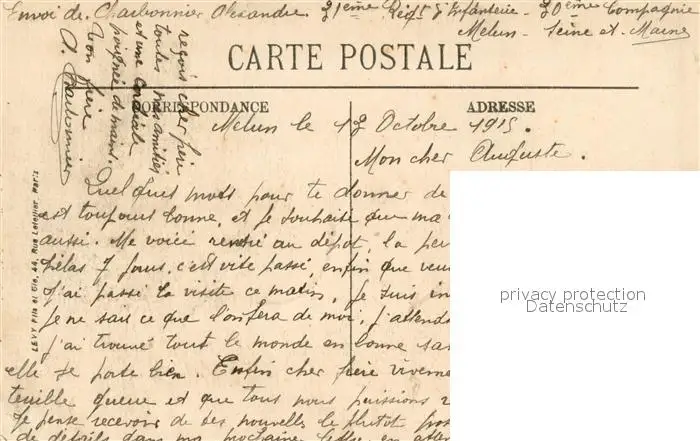 Envoi de Charbonnier Alexandre 21ème Régt d'Infanterie - 20ème Compagnie
Melun - Seine et - Marne
CARTE POSTALE
CORRESPONDANCE
ADRESSE
Melun le 12 Octobre 1915.
Mon cher Auguste.
Quelques mots pour te donner de
est toujours bonne, et je souhaite que ma
aussi. Me voici rentré au dépôt, la
hélas 7 jours, c'est vite passé, enfin que
J'ai passé la visite ce matin, je suis
je ne sais ce que l'on fera de moi, j'attends
j'ai trouvé tout le monde en bonne
elle se porte bien. Enfin cher frère
queue et que tous nous puissions
Je pense recevoir de tes nouvelles le plutôt
de détails dans ma prochaine lettre, en
reçois cher frère
toutes mes amitiés
et une cordiale
poignée de mains.
Ton frère
A. Charbonnier
LEVY Fils et Cie, 44, Rue Letellier, Paris
privacy protection
Datenschutz